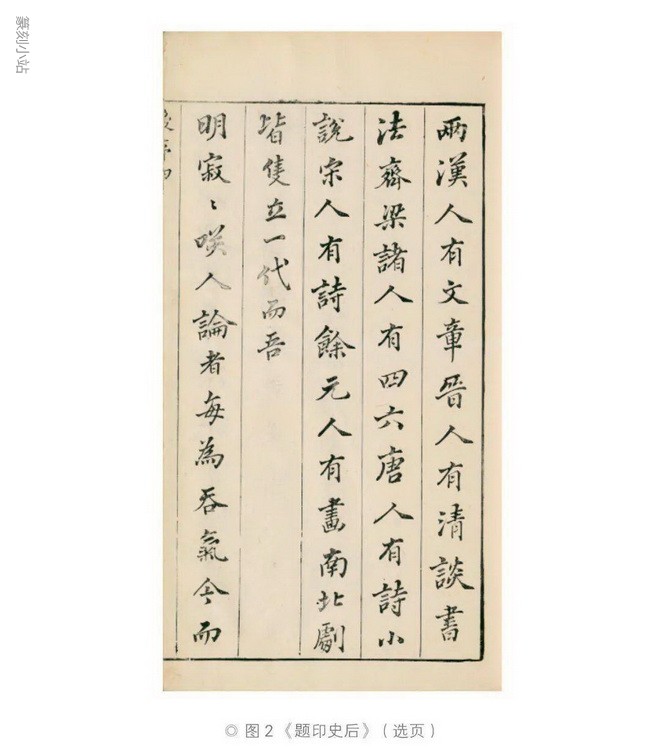 篆刻小站
兩漢人有文章晉人有清談書
法齊梁諸人有四六唐人有詩小
說宋人有詩餘元人有畫南北劇
皆隻立一代而吾
明寂〻咲人論者每為吞氣今而
◎ 图 2《题印史后》（选页）